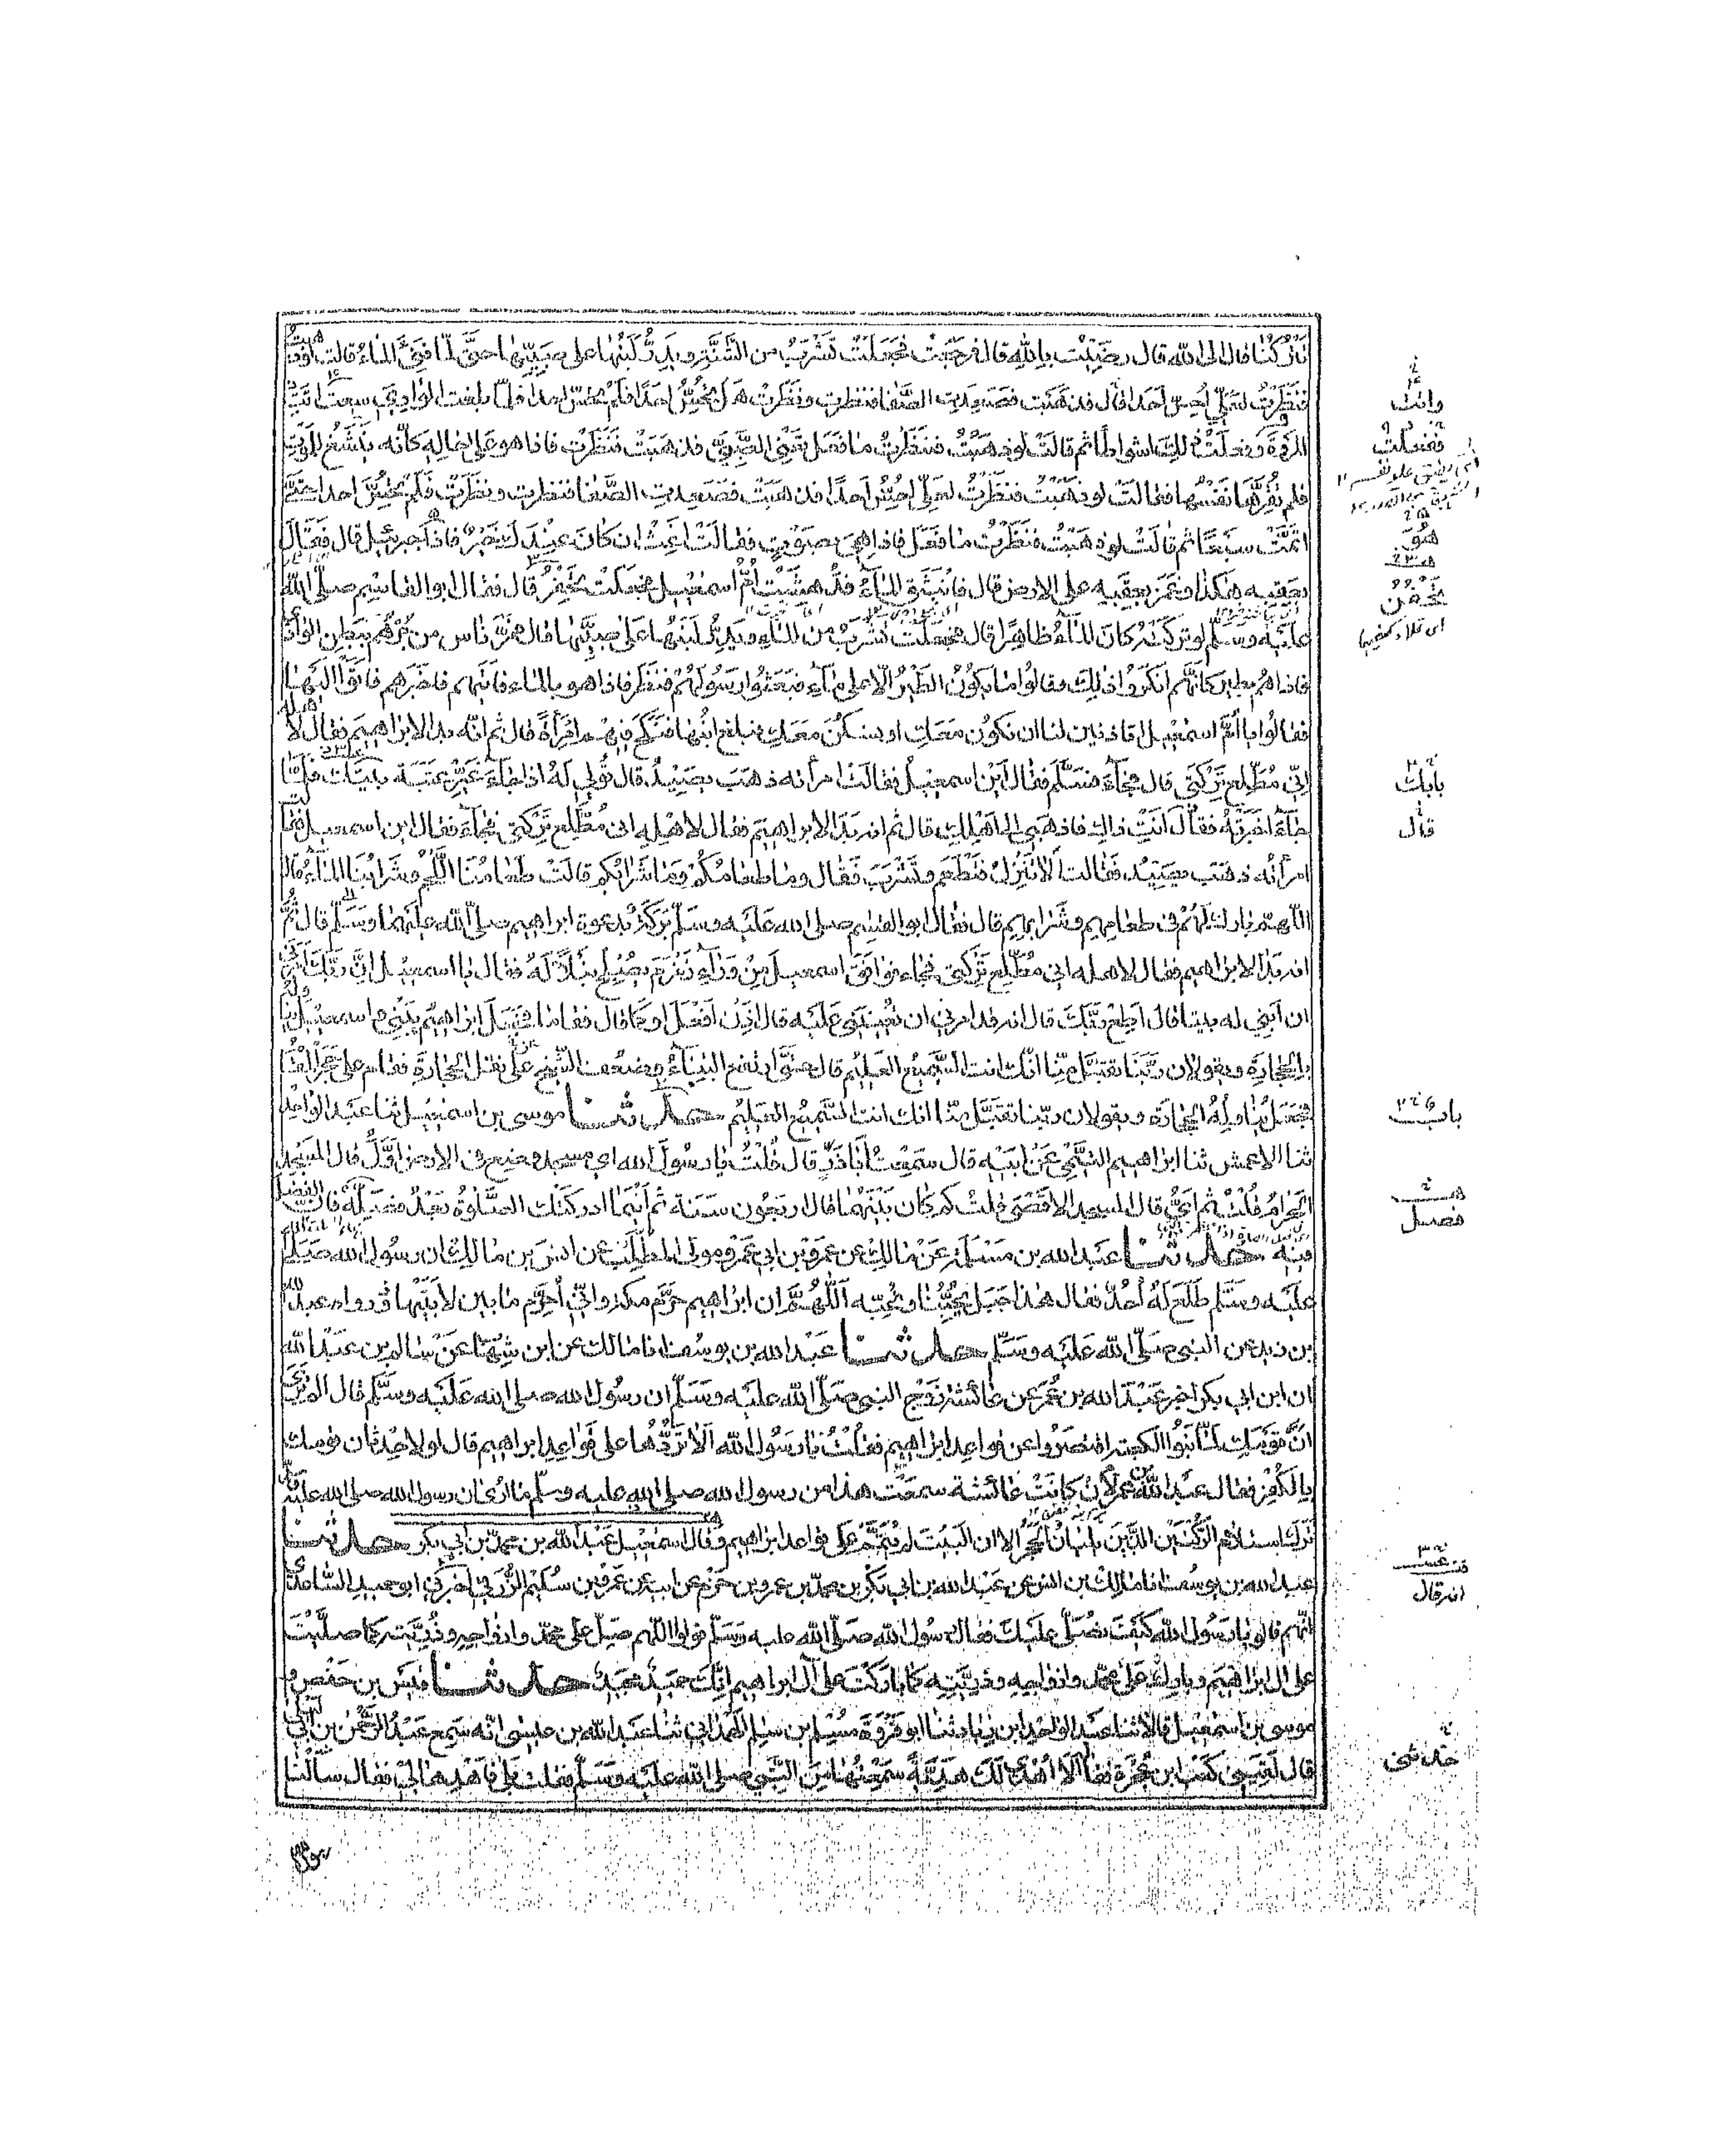 تتركنا قال الى الله قال رضيت بالله قال فرجعت فجعلت تشرب من الشنة ويدر لبنها على صبيها حتى لما فنى الماء قالت لو ذهبت
فنظرت لعلي احس احدا قال فذهبت فصعدت الصفا فنظرت ونظرت هل تحس احدا فلم تحس احدا فلما بلغت الوادي سعت اتت
المروة وفعلت ذلك اشواطا ثم قالت لو ذهبت فنظرت ما فعل يعني الصبي فذهبت فنظرت فاذا هو على حاله كانه ينشغ للموت
فلم تقرها نفسها فقالت لو ذهبت فنظرت لعلي احس احدا فذهبت فصعدت الصفا فنظرت ونظرت فلم تحس احدا حتى
اتمت سبعا ثم قالت لو ذهبت فنظرت ما فعل فاذا هي بصوت فقالت اغث ان كان عندك خير فاذا جبرئيل قال فقال
بعقبه هكذا وغمز بعقبه على الارض قال فانبثق الماء فدهشت ام اسمعيل فجعلت تحفر قال فقال ابو القاسم صلى الله
عليه وسلم لو تركته كان الماء ظاهرا قال فجعلت تشرب من الماء ويدر لبنها على صبيها قال فمر ناس من جرهم ببطن الوادي
فاذا هم بطير كانهم انكروا ذلك وقالوا ما يكون الطير الا على ماء فبعثوا رسولهم فنظر فاذا هو بالماء فاتاهم فاخبرهم فاتوا اليها
فقالوا يا ام اسمعيل اتاذنين لنا ان نكون معك او نسكن معك فبلغ ابنها فنكح فيهم امرأة قال ثم انه بدا لابراهيم فقال لاهله
اني مطلع تركتي قال فجاء فسلم فقال اين اسمعيل فقالت امرأته ذهب يصيد قال قولي له اذا جاء غير عتبة بيتك فلما
جاء اخبرته فقال انت ذاك فاذهبي الى اهلك قال ثم انه بدا لابراهيم فقال لاهله اني مطلع تركتي فجاء فقال اين اسمعيل فقالت
امرأته ذهب يصيد فقالت الا تنزل فتطعم وتشرب فقال وما طعامكم وما شرابكم قالت طعامنا اللحم وشرابنا الماء قال
اللهم بارك لهم في طعامهم وشرابهم قال فقال ابو القسم صلى الله عليه وسلم بركة بدعوة ابراهيم صلى الله عليهما وسلم قال ثم
انه بدا لابراهيم فقال لاهله اني مطلع تركتي فجاء فوافق اسمعيل من وراء زمزم يصلح نبلا له فقال يا اسمعيل ان ربك امرني
ان ابني له بيتا قال اطع ربك قال انه قد امرني ان تعينني عليه قال اذن افعل او كما قال فقاما فجعل ابراهيم يبني واسمعيل يناوله
الحجارة ويقولان ربنا تقبل منا انك انت السميع العليم قال حتى ارتفع البناء وضعف الشيخ على نقل الحجارة فقام على حجر المقام
فجعل يناوله الحجارة ويقولان ربنا تقبل منا انك انت السميع العليم حدثنا موسى بن اسمعيل ثنا عبد الواحد
ثنا الاعمش ثنا ابراهيم التيمي عن ابيه قال سمعت ابا ذر قال قلت يا رسول الله اي مسجد وضع في الارض اول قال المسجد
الحرام قلت ثم اي قال المسجد الاقصى قلت كم كان بينهما قال اربعون سنة ثم اينما ادركتك الصلوة بعد فصله فان الفضل
فيه حدثنا عبد الله بن مسلمة عن مالك عن عمرو بن ابي عمرو مولى المطلب عن انس بن مالك ان رسول الله صلى
عليه وسلم طلع له احد فقال هذا جبل يحبنا ونحبه اللهم ان ابراهيم حرم مكة واني احرم ما بين لابتيها ورواه عبد الله
بن زيد عن النبي صلى الله عليه وسلم حدثنا عبد الله بن يوسف انا مالك عن ابن شهاب عن سالم بن عبد الله
ان ابن ابي بكر اخبر عبد الله بن عمر عن عائشة زوج النبي صلى الله عليه وسلم ان رسول الله صلى الله عليه وسلم قال الم تري
ان قومك لما بنوا الكعبة اقتصروا عن قواعد ابراهيم فقلت يا رسول الله الا تردها على قواعد ابراهيم قال لولا حدثان قومك
بالكفر فقال عبد الله بن عمر لئن كانت عائشة سمعت هذا من رسول الله صلى الله عليه وسلم ما ارى ان رسول الله صلى الله عليه وسلم
ترك استلام الركنين اللذين يليان الحجر الا ان البيت لم يتمم على قواعد ابراهيم وقال اسمعيل عبد الله بن محمد بن ابي بكر حدثنا
عبد الله بن يوسف انا مالك بن انس عن عبد الله بن ابي بكر بن محمد بن عمرو بن حزم عن ابيه عن عمرو بن سليم الزرقي اخبرني ابو حميد الساعدي
انهم قالوا يا رسول الله كيف نصلي عليك فقال رسول الله صلى الله عليه وسلم قولوا اللهم صل على محمد وازواجه وذريته كما صليت
على ال ابراهيم وبارك على محمد وازواجه وذريته كما باركت على آل ابراهيم انك حميد مجيد حدثنا قيس بن حفص و
موسى بن اسمعيل قالا ثنا عبد الواحد ابن زياد ثنا ابو فروة مسلم بن سالم الهمداني ثنا عبد الله بن عيسى انه سمع عبد الرحمن بن ابي ليلى
قال لقيني كعب ابن عجرة فقال الا اهدي لك هدية سمعتها من النبي صلى الله عليه وسلم فقلت بلى فاهدها لي فقال سألنا
وانت
ففعلت
هو
تحفن
بابك
قال
باب
فضل
انه قال
حدثني